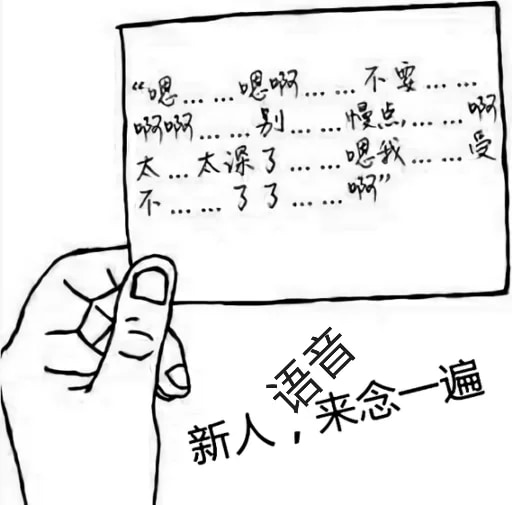 “嗯……嗯啊……不要……
啊啊……别……慢点……啊
太…太深了……嗯我……受
不……了了……啊”
语音
新人，来念一遍